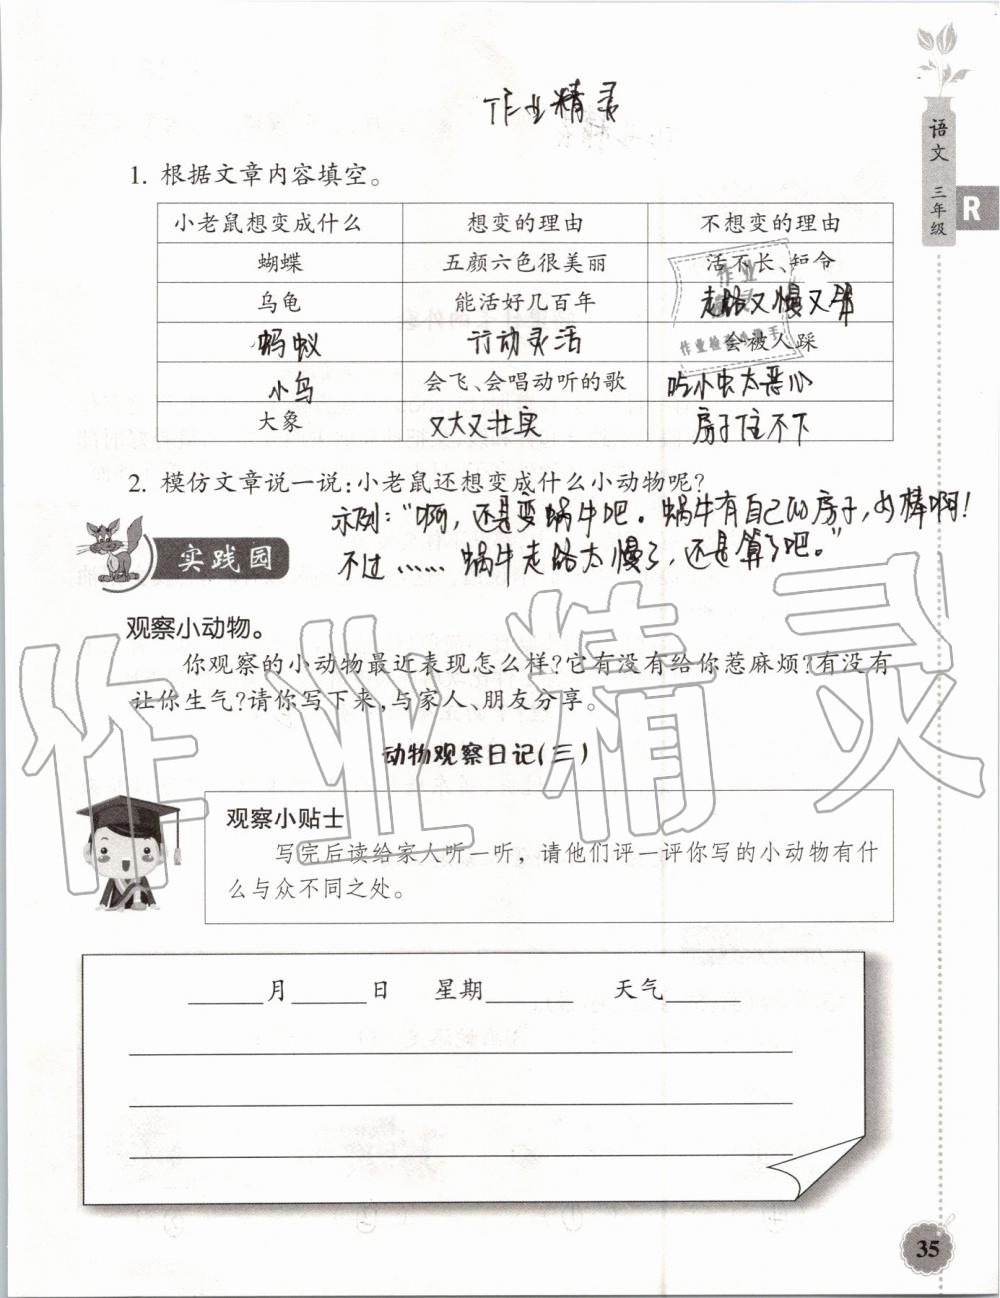 作业精灵
语文 三年级
R
1. 根据文章内容填空。
小老鼠想变成什么 想变的理由 不想变的理由
蝴蝶 五颜六色很美丽 活不长、短命
乌龟 能活好几百年 走路又慢又笨
蚂蚁 行动灵活 会被人踩
小鸟 会飞、会唱动听的歌 吃小虫太恶心
大象 又大又壮实 房子住不下
2. 模仿文章说一说:小老鼠还想变成什么小动物呢?
示例:“啊,还是变蜗牛吧。蜗牛有自己的房子,多棒啊!
不过……蜗牛走路太慢了,还是算了吧。”
实践园
观察小动物。
你观察的小动物最近表现怎么样?它有没有给你惹麻烦?有没有
让你生气?请你写下来,与家人、朋友分享。
动物观察日记(三)
观察小贴士
写完后读给家人听一听,请他们评一评你写的小动物有什
么与众不同之处。
______月______日 星期______ 天气______
35
作业精灵